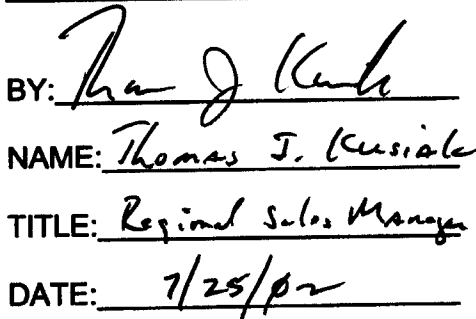 BY: Thomas J Kusiak
NAME: Thomas J. Kusiak
TITLE: Regional Sales Manager
DATE: 7/25/02